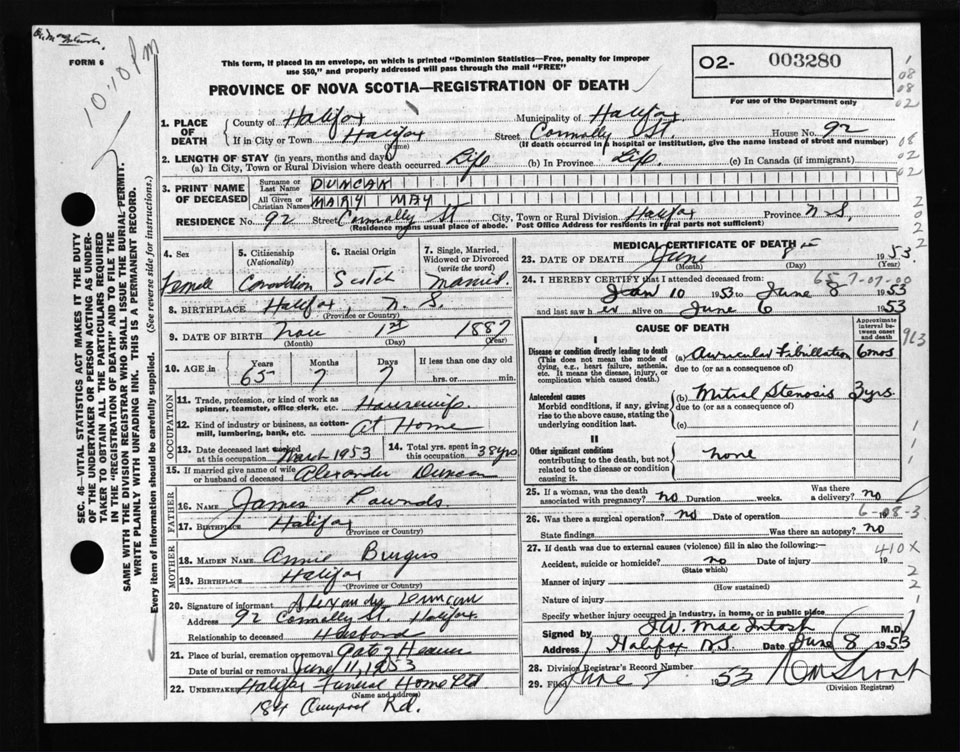 FORM 6
10:10 Pm
This form, if placed in an envelope, on which is printed "Dominion Statistics—Free, penalty for improper
use $50," and properly addressed will pass through the mail "FREE"
O2- 003280
For use of the Department only
PROVINCE OF NOVA SCOTIA—REGISTRATION OF DEATH
1. PLACE OF DEATH { County of Halifax Municipality of Halifax
If in City or Town Halifax (Name) Street Connolly St. House No. 92
(If death occurred in a hospital or institution, give the name instead of street and number)
2. LENGTH OF STAY (in years, months and days)
(a) In City, Town or Rural Division where death occurred Life (b) In Province Life (c) In Canada (if immigrant)
3. PRINT NAME OF DECEASED { Surname or Last Name DUNCAN
All Given or Christian Names MARY MAY
RESIDENCE No. 92 Street Connolly St City, Town or Rural Division Halifax Province N.S.
(Residence means usual place of abode. Post Office Address for residents in rural parts not sufficient)
4. Sex 5. Citizenship (Nationality) 6. Racial Origin 7. Single, Married, Widowed or Divorced (write the word)
Femall Scotch Married
8. BIRTHPLACE Halifax, N.S.
(Province or Country)
9. DATE OF BIRTH Nov 1st 1887
(Month) (Day) (Year)
10. AGE in { Years Months Days If less than one day old
65 7 7 hrs. or min.
OCCUPATION
11. Trade, profession, or kind of work as spinner, teamster, office clerk, etc. Housewife
12. Kind of industry or business, as cotton-mill, lumbering, bank, etc. At Home
13. Date deceased last worked at this occupation March 1953 14. Total yrs. spent in this occupation 38yrs.
15. If married give name of wife or husband of deceased Alexander Duncan
FATHER
16. NAME James Pawnds
17. BIRTHPLACE Halifax
(Province or Country)
MOTHER
18. MAIDEN NAME Annie
19. BIRTHPLACE Halifax
(Province or Country)
20. Signature of informant Alexander Duncan
Address 92 Connolly St. Halifax
Relationship to deceased Husband
21. Place of burial, cremation or removal Gate of Heaven
Date of burial or removal June 11, 1953
22. Undertaker Halifax Funeral Home Ltd
(Name and address)
184 Rd.
MEDICAL CERTIFICATE OF DEATH
23. DATE OF DEATH June 8 1953
(Month) (Day) (Year)
24. I HEREBY CERTIFY that I attended deceased from:
Jan 10 1953 to June 8 1953
and last saw h er alive on June 6 1953
CAUSE OF DEATH
Approximate interval between onset and death
I
Disease or condition directly leading to death (a) Auricular Fibrillation 6mos
(This does not mean the mode of dying, e.g., heart failure, asthenia, etc. It means the disease, injury, or complication which caused death.)
due to (or as a consequence of)
Antecedent causes (b) Mitral Stenosis 3yrs.
Morbid conditions, if any, giving rise to the above cause, stating the underlying condition last.
due to (or as a consequence of)
(c)
II
Other significant conditions none
contributing to the death, but not related to the disease or condition causing it.
25. If a woman, was the death associated with pregnancy? no Duration weeks. Was there a delivery? no
26. Was there a surgical operation? no Date of operation
State findings Was there an autopsy? no
27. If death was due to external causes (violence) fill in also the following:—
410X
Accident, suicide or homicide? no Date of injury 19
(State which)
Manner of injury
(How sustained)
Nature of injury
Specify whether injury occurred in industry, in home, or in public place
Signed by J.W. MacIntosh M.D.
Address Halifax N.S. Date June 8 1953
28. Division Registrar's Record Number
29. Filed June 1953
(Division Registrar)
SEC. 46—VITAL STATISTICS ACT MAKES IT THE DUTY
OF THE UNDERTAKER OR PERSON ACTING AS UNDER-
TAKER TO OBTAIN ALL THE PARTICULARS REQUIRED
IN THE "REGISTRATION OF DEATH" AND TO FILE THE
SAME WITH THE DIVISION REGISTRAR WHO SHALL ISSUE THE BURIAL-PERMIT.
WRITE PLAINLY WITH UNFADING INK. THIS IS A PERMANENT RECORD.
Every item of information should be carefully supplied. (See reverse side for instructions.)